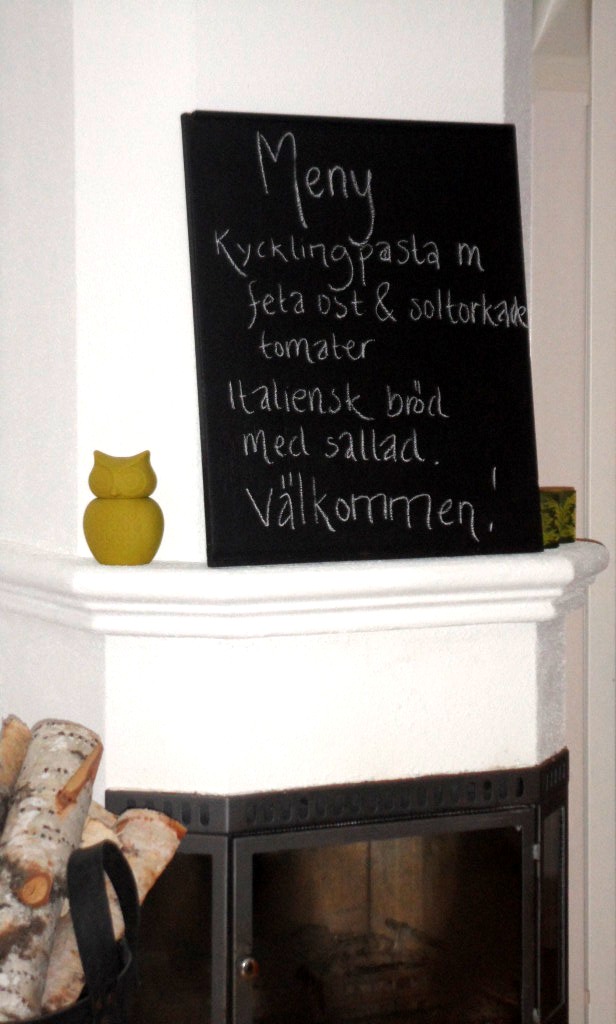 Meny
Kycklingpasta m
feta ost & soltorkade
tomater
Italiensk bröd
med sallad.
Välkommen!